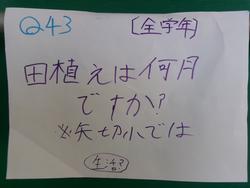 Q43 [全学年]
田植えは何月
ですか?
※矢切小では
生活